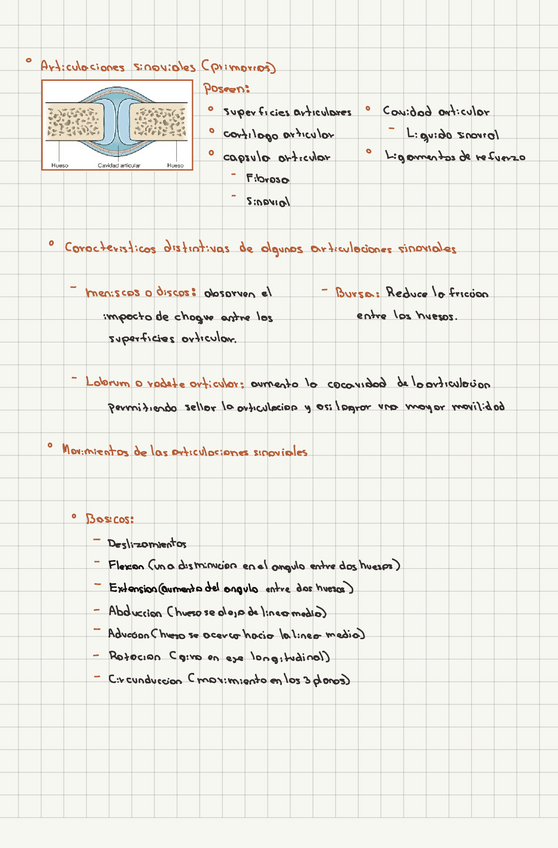 ° Articulaciones sinoviales (primarios)
Poseen:
° superficies articulares
° cartilago articular
° capsula articular
- Fibroso
- Sinovial
° Cavidad articular
- Liquido sinovial
° Ligamentos de refuerzo
Hueso Cavidad articular Hueso
° Caracteristicas distintivas de algunas articulaciones sinoviales
- meniscos o discos: absorven el
impacto de choque entre las
superficies articular.
- Bursa: Reduce la friccion
entre los huesos.
- Labrum o rodete articular: aumenta la cocavidad de la articulacion
permitiendo sellar la articulacion y asi lograr una mayor movilidad
° Movimientos de las articulaciones sinoviales
° Basicos:
- Deslizamientos
- Flexion (una disminucion en el angulo entre dos huesos)
- Extension (aumento del angulo entre dos huesos)
- Abduccion (hueso se aleja de linea media)
- Aduccion (hueso se acerca hacia la linea media)
- Rotacion (giro en eje longitudinal)
- Circunduccion (movimiento en los 3 planos)